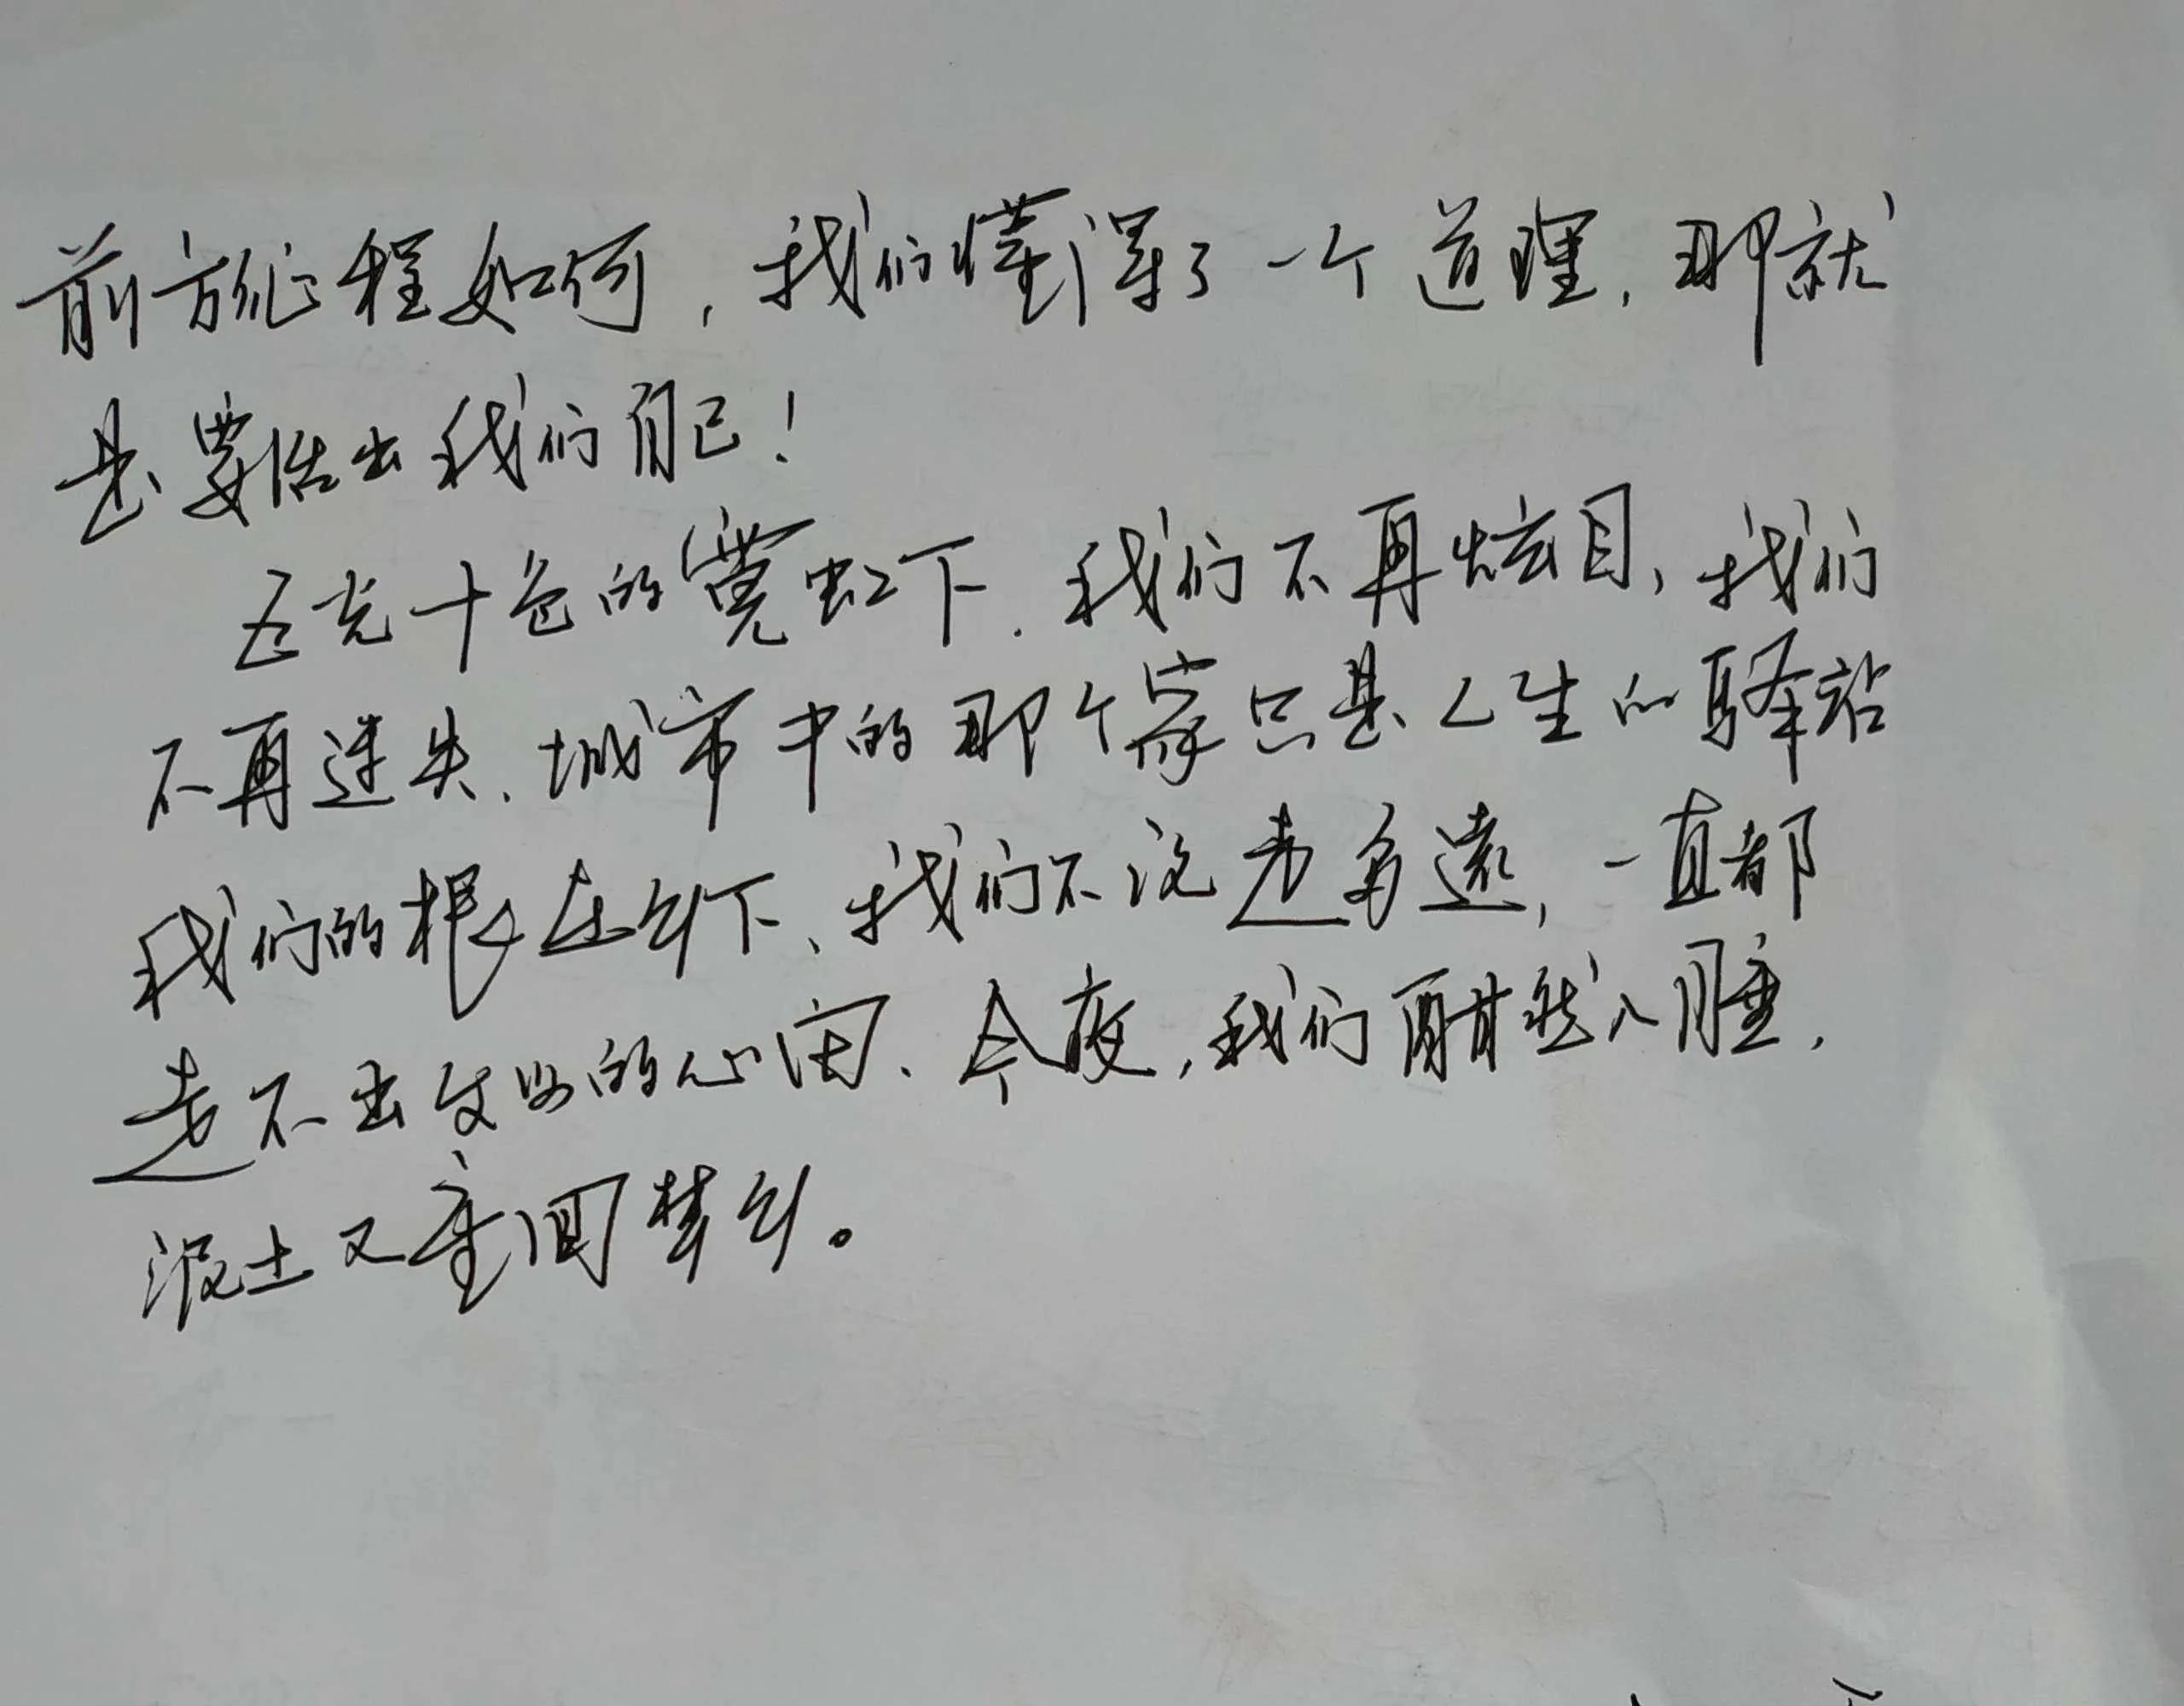 前方征程如何，我们懂得了一个道理，那就
是要活出我们自己！
五光十色的霓虹下，我们不再炫目，我们
不再迷失、城市中的那个家只是人生的驿站
我们的根在乡下、我们不论走多远，一直都
走不出父母的心窝、今夜，我们酣然入睡，
泥土又重回梦乡。